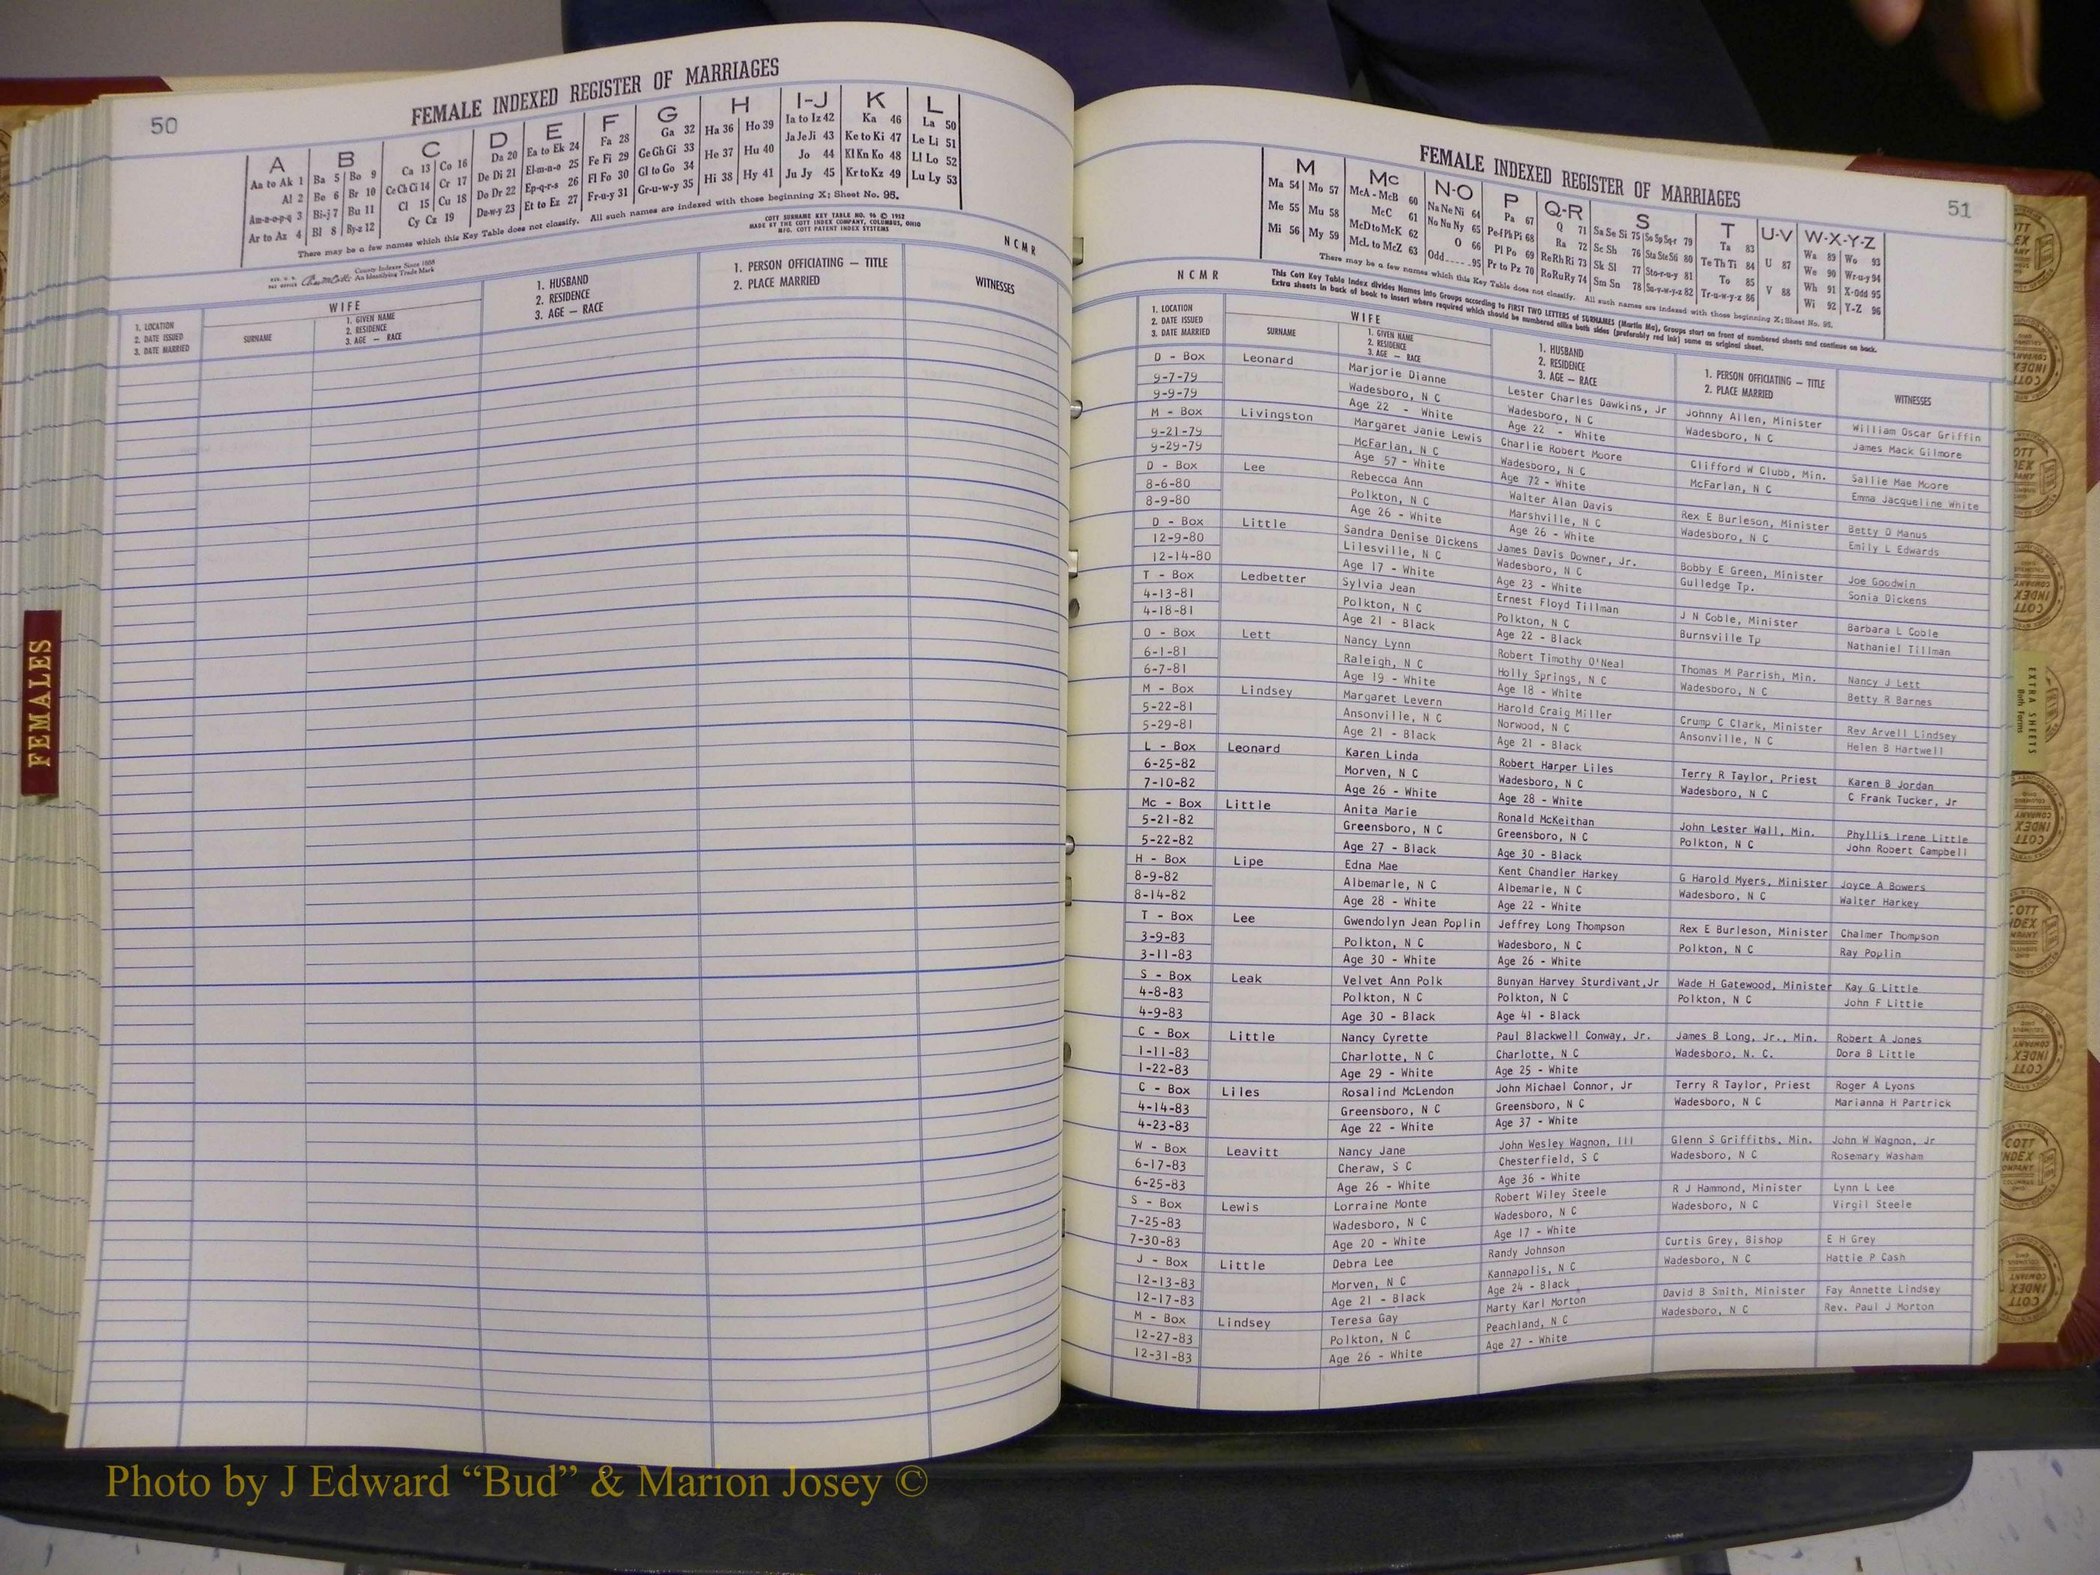 50
FEMALE INDEXED REGISTER OF MARRIAGES
A B C D E F G H I-J K L
Aa to Ak 1 Ba 5 Bo 9 Ca 13 Co 16 Da 20 Ea to Ek 24 Fa 28 Ga 32 Ha 36 Ho 39 Ia to Iz 42 Ka 46 La 50
Al 2 Be 6 Br 10 Ce Ch Ci 14 Cr 17 De Di 21 El-m-n-o 25 Fe Fi 29 Ge Gh Gi 33 He 37 Hu 40 Ja Je Ji 43 Ke to Ki 47 Le Li 51
Am-n-o-p-q 3 Bi-j 7 Bu 11 Cl 15 Cu 18 Do Dr 22 Ep-q-r-s 26 Fl Fo 30 Gl to Go 34 Hi 38 Hy 41 Jo 44 Kl Kn Ko 48 Ll Lo 52
Ar to Az 4 Bl 8 By-z 12 Cy Cz 19 Du-w-y 23 Et to Ez 27 Fr-u-y 31 Gr-u-w-y 35 Ju Jy 45 Kr to Kz 49 Lu Ly 53
There may be a few names which this Key Table does not classify. All such names are indexed with those beginning X; Sheet No. 95.
County Indexes Since 1888
An Identifying Trade Mark
COTT SURNAME KEY TABLE NO. 96 © 1952
MADE BY THE COTT INDEX COMPANY, COLUMBUS, OHIO
MFG. COTT PATENT INDEX SYSTEMS
N C M R
1. LOCATION
2. DATE ISSUED
3. DATE MARRIED
WIFE
SURNAME
1. GIVEN NAME
2. RESIDENCE
3. AGE — RACE
1. HUSBAND
2. RESIDENCE
3. AGE — RACE
1. PERSON OFFICIATING — TITLE
2. PLACE MARRIED
WITNESSES
FEMALES
51
FEMALE INDEXED REGISTER OF MARRIAGES
M Mc N-O P Q-R S T U-V W-X-Y-Z
Ma 54 Mo 57 McA - McB 60 Na Ne Ni 64 Pa 67 Q 71 Sa Se Si 75 So Sp Sq-r 79 Ta 83 U 87 Wa 89 Wo 93
Me 55 Mu 58 McC 61 No Nu Ny 65 Pe-f Ph Pi 68 Ra 72 Sc Sh 76 Sta Ste Sti 80 Te Th Ti 84 V 88 We 90 Wr-u-y 94
Mi 56 My 59 McD to McK 62 O 66 Pl Po 69 Re Rh Ri 73 Sk Sl 77 Sto-r-u-y 81 To 85 Wh 91 X-Odd 95
McL to McZ 63 Odd 95 Pr to Pz 70 Ro Ru Ry 74 Sm Sn 78 Su-v-w-y-z 82 Tr-u-w-y-z 86 Wi 92 Y-Z 96
There may be a few names which this Key Table does not classify. All such names are indexed with those beginning X; Sheet No. 95.
This Cott Key Table Index divides Names into Groups according to FIRST TWO LETTERS of SURNAMES (Martin Ma), Groups start on front of numbered sheets and continue on back.
Extra sheets in back of book to insert where required which should be numbered alike both sides (preferably red ink) same as original sheet.
N C M R
1. LOCATION
2. DATE ISSUED
3. DATE MARRIED
WIFE
SURNAME
1. GIVEN NAME
2. RESIDENCE
3. AGE — RACE
1. HUSBAND
2. RESIDENCE
3. AGE — RACE
1. PERSON OFFICIATING — TITLE
2. PLACE MARRIED
WITNESSES
D - Box Leonard Marjorie Dianne Lester Charles Dawkins, Jr Johnny Allen, Minister William Oscar Griffin
9-7-79 Wadesboro, N C Wadesboro, N C Wadesboro, N C James Mack Gilmore
9-9-79 Age 22 - White Age 22 - White
M - Box Livingston Margaret Janie Lewis Charlie Robert Moore Clifford W Clubb, Min. Sallie Mae Moore
9-21-79 McFarlan, N C Wadesboro, N C McFarlan, N C Emma Jacqueline White
9-29-79 Age 57 - White Age 72 - White
D - Box Lee Rebecca Ann Walter Alan Davis Rex E Burleson, Minister Betty D Manus
8-6-80 Polkton, N C Marshville, N C Wadesboro, N C Emily L Edwards
8-9-80 Age 26 - White Age 26 - White
D - Box Little Sandra Denise Dickens James Davis Downer, Jr. Bobby E Green, Minister Joe Goodwin
12-9-80 Lilesville, N C Wadesboro, N C Gulledge Tp. Sonia Dickens
12-14-80 Age 17 - White Age 23 - White
T - Box Ledbetter Sylvia Jean Ernest Floyd Tillman J N Coble, Minister Barbara L Coble
4-13-81 Polkton, N C Polkton, N C Burnsville Tp Nathaniel Tillman
4-18-81 Age 21 - Black Age 22 - Black
O - Box Lett Nancy Lynn Robert Timothy O'Neal Thomas M Parrish, Min. Nancy J Lett
6-1-81 Raleigh, N C Holly Springs, N C Wadesboro, N C Betty R Barnes
6-7-81 Age 19 - White Age 18 - White
M - Box Lindsey Margaret Levern Harold Craig Miller Crump C Clark, Minister Rev Arvell Lindsey
5-22-81 Ansonville, N C Norwood, N C Ansonville, N C Helen B Hartwell
5-29-81 Age 21 - Black Age 21 - Black
L - Box Leonard Karen Linda Robert Harper Liles Terry R Taylor, Priest Karen B Jordan
6-25-82 Morven, N C Wadesboro, N C Wadesboro, N C C Frank Tucker, Jr
7-10-82 Age 26 - White Age 28 - White
Mc - Box Little Anita Marie Ronald McKeithan John Lester Wall, Min. Phyllis Irene Little
5-21-82 Greensboro, N C Greensboro, N C Polkton, N C John Robert Campbell
5-22-82 Age 27 - Black Age 30 - Black
H - Box Lipe Edna Mae Kent Chandler Harkey G Harold Myers, Minister Joyce A Bowers
8-9-82 Albemarle, N C Albemarle, N C Wadesboro, N C Walter Harkey
8-14-82 Age 28 - White Age 22 - White
T - Box Lee Gwendolyn Jean Poplin Jeffrey Long Thompson Rex E Burleson, Minister Chalmer Thompson
3-9-83 Polkton, N C Wadesboro, N C Polkton, N C Ray Poplin
3-11-83 Age 30 - White Age 26 - White
S - Box Leak Velvet Ann Polk Bunyan Harvey Sturdivant,Jr Wade H Gatewood, Minister Kay G Little
4-8-83 Polkton, N C Polkton, N C Polkton, N C John F Little
4-9-83 Age 30 - Black Age 41 - Black
C - Box Little Nancy Cyrette Paul Blackwell Conway, Jr. James B Long, Jr., Min. Robert A Jones
1-11-83 Charlotte, N C Charlotte, N C Wadesboro, N. C. Dora B Little
1-22-83 Age 29 - White Age 25 - White
C - Box Liles Rosalind McLendon John Michael Connor, Jr Terry R Taylor, Priest Roger A Lyons
4-14-83 Greensboro, N C Greensboro, N C Wadesboro, N C Marianna H Partrick
4-23-83 Age 22 - White Age 37 - White
W - Box Leavitt Nancy Jane John Wesley Wagnon, III Glenn S Griffiths, Min. John W Wagnon, Jr
6-17-83 Cheraw, S C Chesterfield, S C Wadesboro, N C Rosemary Washam
6-25-83 Age 26 - White Age 36 - White
S - Box Lewis Lorraine Monte Robert Wiley Steele R J Hammond, Minister Lynn L Lee
7-25-83 Wadesboro, N C Wadesboro, N C Wadesboro, N C Virgil Steele
7-30-83 Age 20 - White Age 17 - White
J - Box Little Debra Lee Randy Johnson Curtis Grey, Bishop E H Grey
12-13-83 Morven, N C Kannapolis, N C Wadesboro, N C Hattie P Cash
12-17-83 Age 21 - Black Age 24 - Black
M - Box Lindsey Teresa Gay Marty Karl Morton David B Smith, Minister Fay Annette Lindsey
12-27-83 Polkton, N C Peachland, N C Wadesboro, N C Rev. Paul J Morton
12-31-83 Age 26 - White Age 27 - White
EXTRA SHEETS
Both Forms
COTT INDEX COMPANY
Photo by J Edward “Bud” & Marion Josey ©